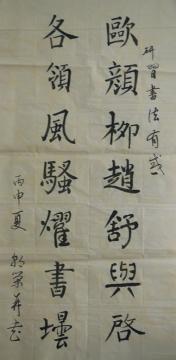 研習書法有感
歐顏柳趙舒與啓
各領風騷耀書壇
丙申夏